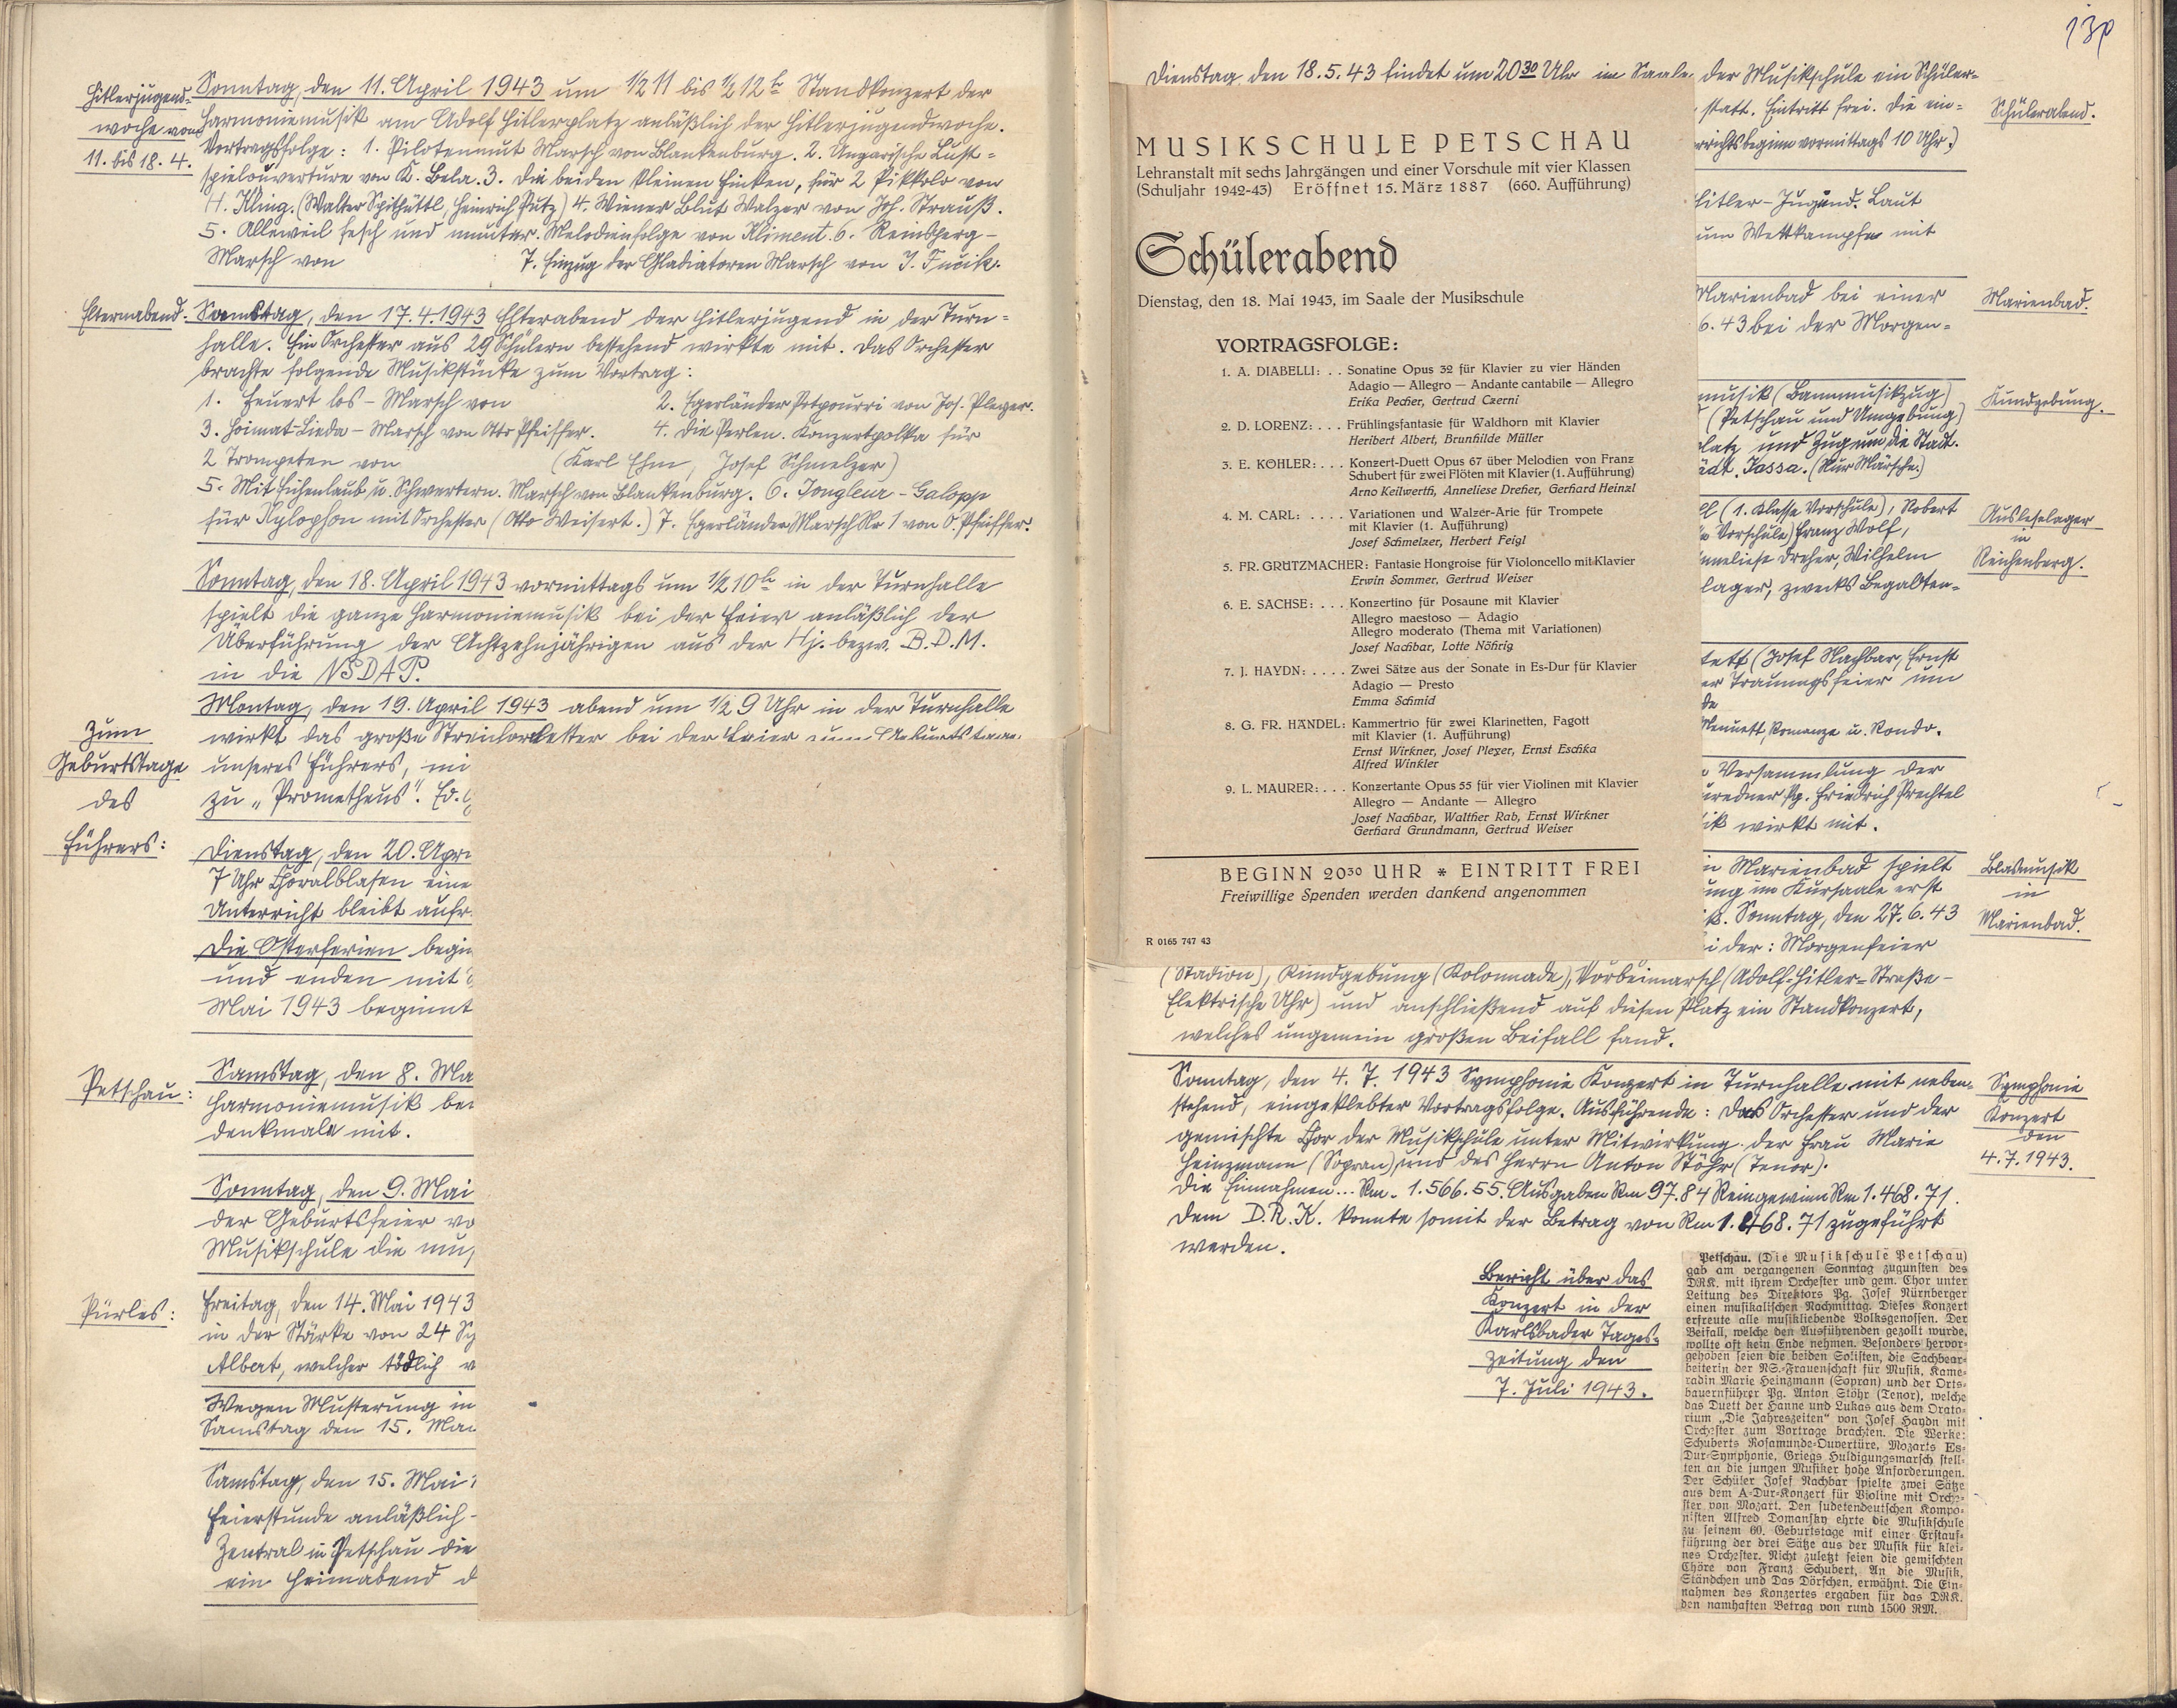 Hitlerjugend-
woche vom
11. bis 18. 4.
Sonntag, den 11. April 1943 um ½ 11 bis ½ 12 h Standkonzert der
Harmoniemusik am Adolf Hitlerplatz anläßlich der Hitlerjugendwoche.
Vortragsfolge: 1. Pilotenmut Marsch von Blankenburg. 2. Ungarische Lust=
spielouvertüre von K. Bela. 3. Die beiden kleinen Finken, für 2 Pikkolo von
H. Kling. (Walter Spithüttl, Heinrich Putz) 4. Wiener Blut Walzer von Joh. Strauß.
5. Alleweil fesch und munter. Melodienfolge von Kliment. 6. Reinsperg-
Marsch von 7. Einzug der Gladiatoren Marsch von J. Fucik.
Elternabend.
Samstag, den 17.4.1943 Elterabend der Hitlerjugend in der Turn=
halle. Ein Orchester aus 29 Schülern bestehend wirkte mit. Das Orchester
brachte folgende Musikstücke zum Vortrag:
1. Feuert los - Marsch von 2. Egerländer Potpourri von Jos. Pleyer.
3. Heimat-Lieder - Marsch von Otto Pfeiffer. 4. Die Perlen. Konzertpolka für
2 Trompeten von (Karl Ehm, Josef Schmelzer)
5. Mit Eichenlaub u. Schwertern. Marsch von Blankenburg. 6. Jongleur - Galopp
für Xylophon mit Orchester (Otto Weisert.) 7. Egerländer Marsch Nr 1 von O. Pfeiffer.
Sonntag, den 18. April 1943 vormittags um ½ 10 h in der Turnhalle
spielt die ganze Harmoniemusik bei der Feier anläßlich der
Überführung der Achtzehnjährigen aus der Hj. bezw. B.D.M.
in die NSDAP.
Zum
Geburtstage
des
Führers:
Montag, den 19. April 1943 abend um ½ 9 Uhr in der Turnhalle
wirkt das große Streichorchester bei der Feier zum Geburtstage
unseres Führers, mi
zu „Prometheus". Ed.
Dienstag, den 20. Apri
7 Uhr Choralblasen eine
Unterricht bleibt aufr
Die Osterferien begin
und enden mit
Mai 1943 beginnt
Petschau:
Samstag, den 8. Ma
Harmoniemusik be
denkmale mit.
Sonntag, den 9. Mai
der Geburtsfeier vo
Musikschule die mu
Pürles:
Freitag, den 14. Mai 1943
in der Stärke von 24 Sch
Albert, welcher tödlich v
Wegen Musterung in
Samstag den 15. Mai
Samstag, den 15. Mai 1
Feierstunde anläßlich
Zentral in Petschau die
ein Heimabend d
130
Dienstag den 18.5.43 findet um 20 30 Uhr im Saale der Musikschule ein Schüler-
statt. Eintritt frei. Die ein=
rrichtsbeginn vormittags 10 Uhr.)
Schülerabend.
MUSIKSCHULE PETSCHAU
Lehranstalt mit sechs Jahrgängen und einer Vorschule mit vier Klassen
(Schuljahr 1942-43) Eröffnet 15. März 1887 (660. Aufführung)
Schülerabend
Dienstag, den 18. Mai 1943, im Saale der Musikschule
VORTRAGSFOLGE:
1. A. DIABELLI: . . Sonatine Opus 32 für Klavier zu vier Händen
Adagio — Allegro — Andante cantabile — Allegro
Erika Pecher, Gertrud Czerni
2. D. LORENZ: . . . Frühlingsfantasie für Waldhorn mit Klavier
Heribert Albert, Brunhilde Müller
3. E. KÖHLER: . . . Konzert-Duett Opus 67 über Melodien von Franz
Schubert für zwei Flöten mit Klavier (1. Aufführung)
Arno Keilwerth, Anneliese Dreher, Gerhard Heinzl
4. M. CARL: . . . . Variationen und Walzer-Arie für Trompete
mit Klavier (1. Aufführung)
Josef Schmelzer, Herbert Feigl
5. FR. GRÜTZMACHER: Fantasie Hongroise für Violoncello mit Klavier
Erwin Sommer, Gertrud Weiser
6. E. SACHSE: . . . Konzertino für Posaune mit Klavier
Allegro maestoso — Adagio
Allegro moderato (Thema mit Variationen)
Josef Nachbar, Lotte Nöhrig
7. J. HAYDN: . . . . Zwei Sätze aus der Sonate in Es-Dur für Klavier
Adagio — Presto
Emma Schmid
8. G. FR. HÄNDEL: Kammertrio für zwei Klarinetten, Fagott
mit Klavier (1. Aufführung)
Ernst Wirkner, Josef Pleyer, Ernst Eschka
Alfred Winkler
9. L. MAURER: . . . Konzertante Opus 55 für vier Violinen mit Klavier
Allegro — Andante — Allegro
Josef Nachbar, Walther Rab, Ernst Wirkner
Gerhard Grundmann, Gertrud Weiser
BEGINN 20³⁰ UHR * EINTRITT FREI
Freiwillige Spenden werden dankend angenommen
R 0165 747 43
Hitler-Jugend. Laut
um Wettkampfe mit
Marienbad bei einer
6. 43 bei der Morgen=
Marienbad.
musik (Bannmusikzug)
(Petschau und Umgebung)
platz und Zug um die Stadt.
ädt. Jassa. (Nur Märsche.)
Kundgebung.
ll (1. Klasse Vorschule), Robert
Vorschule) Franz Wolf,
nneliese Dreher, Wilhelm
lager, zwecks Begabten=
Ausleselager
in
Reichenberg.
tett (Josef Nachbar, Ernst
er Trauungsfeier um
de
Menuett, Romanze u. Rondo.
Versammlung der
redner Pg. Friedrich Prechtel
ik wirkt mit.
in Marienbad spielt
ung im Kursaale erst
. Sonntag, den 27. 6. 43
i der: Morgenfeier
Blasmusik
in
Marienbad.
(Stadion), Kundgebung (Kolonnade), Vorbeimarsch (Adolf-Hitler-Straße-
Elektrische Uhr) und anschließend auf diesen Platz ein Standkonzert,
welches ungemein großen Beifall fand.
Sonntag, den 4. 7. 1943 Symphonie Konzert in Turnhalle mit neben-
stehend, eingeklebter Vortragsfolge. Ausführende: Das Orchester und der
gemischte Chor der Musikschule unter Mitwirkung der Frau Marie
Heinzmann (Sopran) und des Herrn Anton Stöhr (Tenor).
Die Einnahmen... Rm. 1.566.55. Ausgaben Rm 97.84 Reingewinn Rm 1.468.71.
Dem D.R.K. konnte somit der Betrag von Rm 1.468.71 zugeführt
werden.
Symphonie
Konzert
den
4.7.1943.
Bericht über das
Konzert in der
Karlsbader Tages-
zeitung den
7. Juli 1943.
Petschau. (Die Musikschule Petschau)
gab am vergangenen Sonntag zugunsten des
DRK. mit ihrem Orchester und gem. Chor unter
Leitung des Direktors Pg. Josef Nürnberger
einen musikalischen Nachmittag. Dieses Konzert
erfreute alle musikliebende Volksgenossen. Der
Beifall, welche den Ausführenden gezollt wurde,
wollte oft kein Ende nehmen. Besonders hervor-
gehoben seien die beiden Solisten, die Sachbear-
beiterin der NS.-Frauenschaft für Musik, Kame-
radin Marie Heinzmann (Sopran) und der Orts-
bauernführer Pg. Anton Stöhr (Tenor), welche
das Duett der Hanne und Lukas aus dem Orato-
rium „Die Jahreszeiten" von Josef Haydn mit
Orchester zum Vortrage brachten. Die Werke:
Schuberts Rosamunde-Ouvertüre, Mozarts Es-
Dur-Symphonie, Griegs Huldigungsmarsch stell-
ten an die jungen Musiker hohe Anforderungen.
Der Schüler Josef Nachbar spielte zwei Sätze
aus dem A-Dur-Konzert für Violine mit Orche-
ster von Mozart. Den sudetendeutschen Kompo-
nisten Alfred Domansky ehrte die Musikschule
zu seinem 60. Geburtstage mit einer Erstauf-
führung der drei Sätze aus der Musik für klei-
nes Orchester. Nicht zuletzt seien die gemischten
Chöre von Franz Schubert, An die Musik,
Ständchen und Das Dörfchen, erwähnt. Die Ein-
nahmen des Konzertes ergaben für das DRK.
den namhaften Betrag von rund 1500 RM.